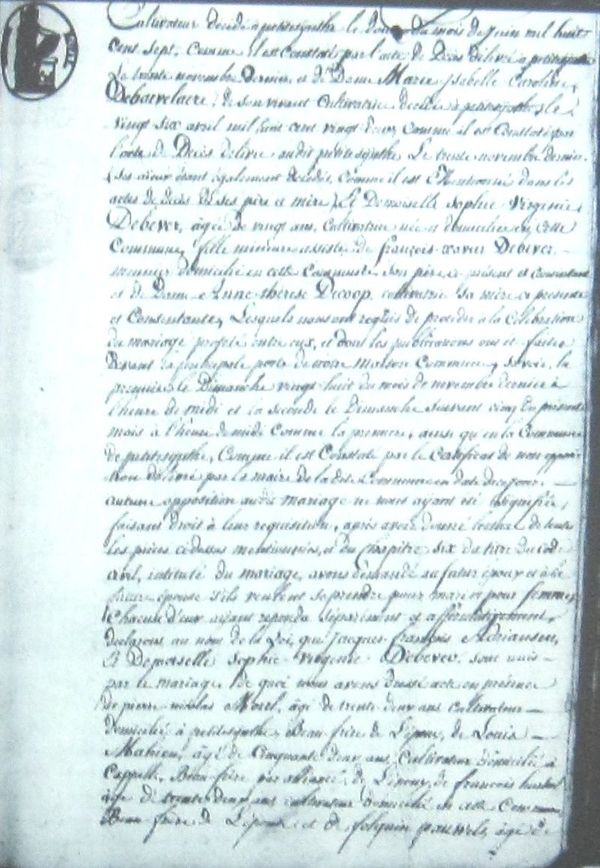 Cultivateur decedé à petitesynthe le douze du mois de juin mil huit
cent sept, comme il est constaté par l'acte de Décès délivré à petitesynthe
Le trente novembre dernier, et de Dame Marie Isabelle Caroline
de son vivant Cultivatrice decedée à petitesynthe, le
vingt six avril mil huit cent vingt deux, comme il est constaté par
l'acte de Décès délivré audit petitesynthe Le trente novembre dernier
Ses aieux étant également décédés, comme il est mentionné dans les
actes de décès de ses père et mère, Et Demoiselle Sophie Virginie
Debever, agée de vingt ans, cultivatrice née et domiciliée en cette
Commune, fille mineure assistée de françois xavier Debever
domicilié en cette Commune son père ci présent et consentant
et de Dame Anne thérèse Decoop, cultivatrice sa mère ci presente
et consentante, Lesquels nous ont requis de proceder à la Célébration
du mariage projeté entre eux, et dont les publications ont été faites
devant la principale porte de notre Maison Commune, Savoir, la
premiere le Dimanche vingt huit du mois de novembre dernier à
l'heure de midi et la seconde le Dimanche suivant cinq du présent
mois à l'heure de midi comme la premiere, ainsi qu'en la Commune
de petitesynthe, Comme il est Constaté par le Certificat de non opposi
tion délivré par le maire de la dite Commune en date de ce jour
aucune opposition audit mariage ne nous ayant été signifiée,
faisant droit à leur requisition, après avoir donné lecture de toutes
les pièces ci dessus mentionnées, et du chapitre six du titre du code
civil, intitulé du mariage, avons demandé au futur époux et à la
future épouse s'ils veulent se prendre pour mari et pour femme,
Chacun d'eux ayant repondu séparément et affirmativement,
declarons au nom de la Loi, que Jacques françois Adriansen,
Et Demoiselle Sophie Virginie Debever, sont unis
par le mariage. De quoi nous avons dressé acte en présence
de pierre nicolas Morel, agé de trente deux ans cultivateur
domicilié à petitesynthe Beau frère de L'époux, de Louis
Mahieu, agé de Cinquante deux ans, Cultivateur domicilié à
Cappelle, Beau frère par alliance de L'époux, de francois
agé de trente deux ans cultivateur domicilié en cette Commune
Beau frère de L'épouse et de folquin pauwels, agé de